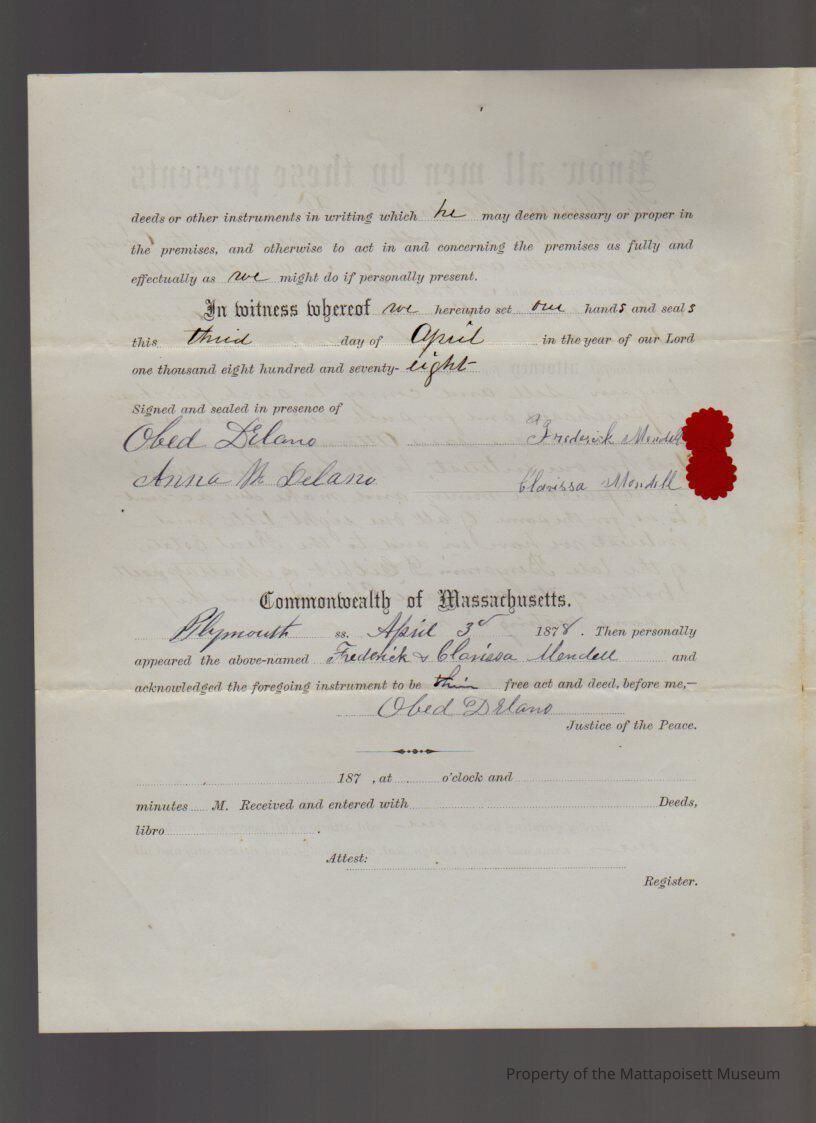 deeds or other instruments in writing which he may deem necessary or proper in
the premises, and otherwise to act in and concerning the premises as fully and
effectually as we might do if personally present.
In witness whereof we hereunto set our hands and seals
this third day of April in the year of our Lord
one thousand eight hundred and seventy-eight
Signed and sealed in presence of
Obed Delano Frederick Mendell
Anna M Delano Clarissa Mendell
Commonwealth of Massachusetts.
Plymouth ss. April 3d 1878. Then personally
appeared the above-named Frederick & Clarissa Mendell and
acknowledged the foregoing instrument to be their free act and deed, before me,—
Obed Delano
Justice of the Peace.
187 , at o'clock and
minutes M. Received and entered with Deeds,
libro .
Attest:
Register.
Property of the Mattapoisett Museum